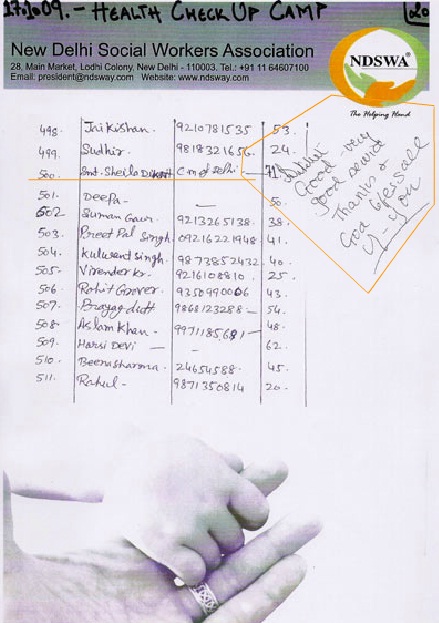 17.1.09. - HEALTH CHECK UP CAMP
New Delhi Social Workers Association
28, Main Market, Lodhi Colony, New Delhi - 110003. Tel.: +91 11 64607100
Email: president@ndsway.com Website: www.ndsway.com
NDSWA
The Helping Hand
498. Jai Kishan. 9210781535 53.
499. Sudhir. 9818321656. 24.
500. Smt. Sheila Dikshit C m of Delhi - 71
Good - very
good service
Thanks &
God bless all
of you
501. Deepa - - 50.
502 Suman Gaur. 9213265138. 38.
503. Preet Pal Singh. 09216221948 41.
504. Kulwant Singh. 9873852432. 40.
505. Virender Kr. 9216108810. 25.
506. Rohit Grover. 9350990006 43.
507. Prayag dutt 9868123288 - 54.
508. Aslam Khan. 9971185681 - 48.
509. Harsi Devi - - 62.
510. Beenu sharma. 24654588. 45.
511. Rahul - 9871350814 20.